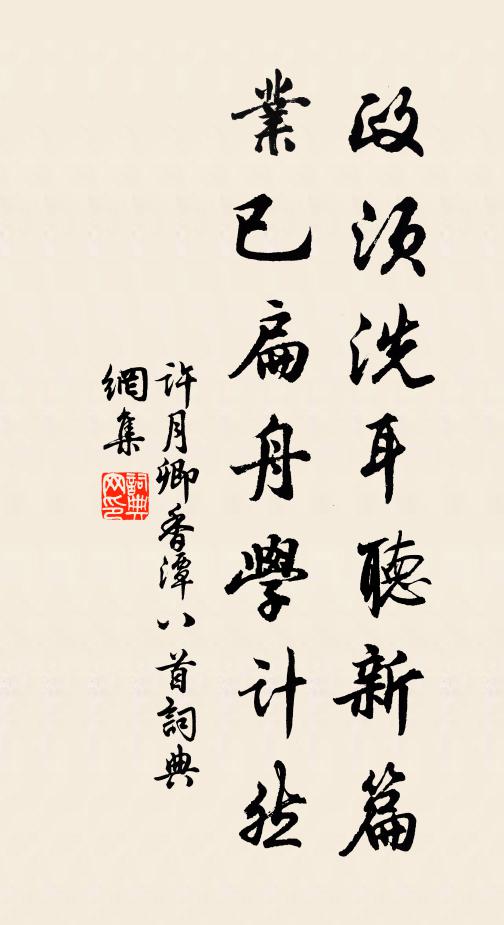 政須洗耳聽新篇
業已扁舟學計然
許月卿香潭八首詞典
網集
詞典網印